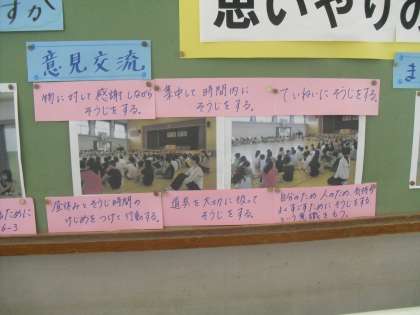 すか
思いやりの
意見交流
ま
物に対して感謝しながら
そうじをする。
集中して時間内に
そうじをする。
ていねいにそうじをする。
ために
6-3
昼休みとそうじ時間の
けじめをつけて行動する。
道具を大切に扱って
そうじをする。
自分のため、人のため、気持ち
よくすごすためにそうじをする
という意識をもつ。